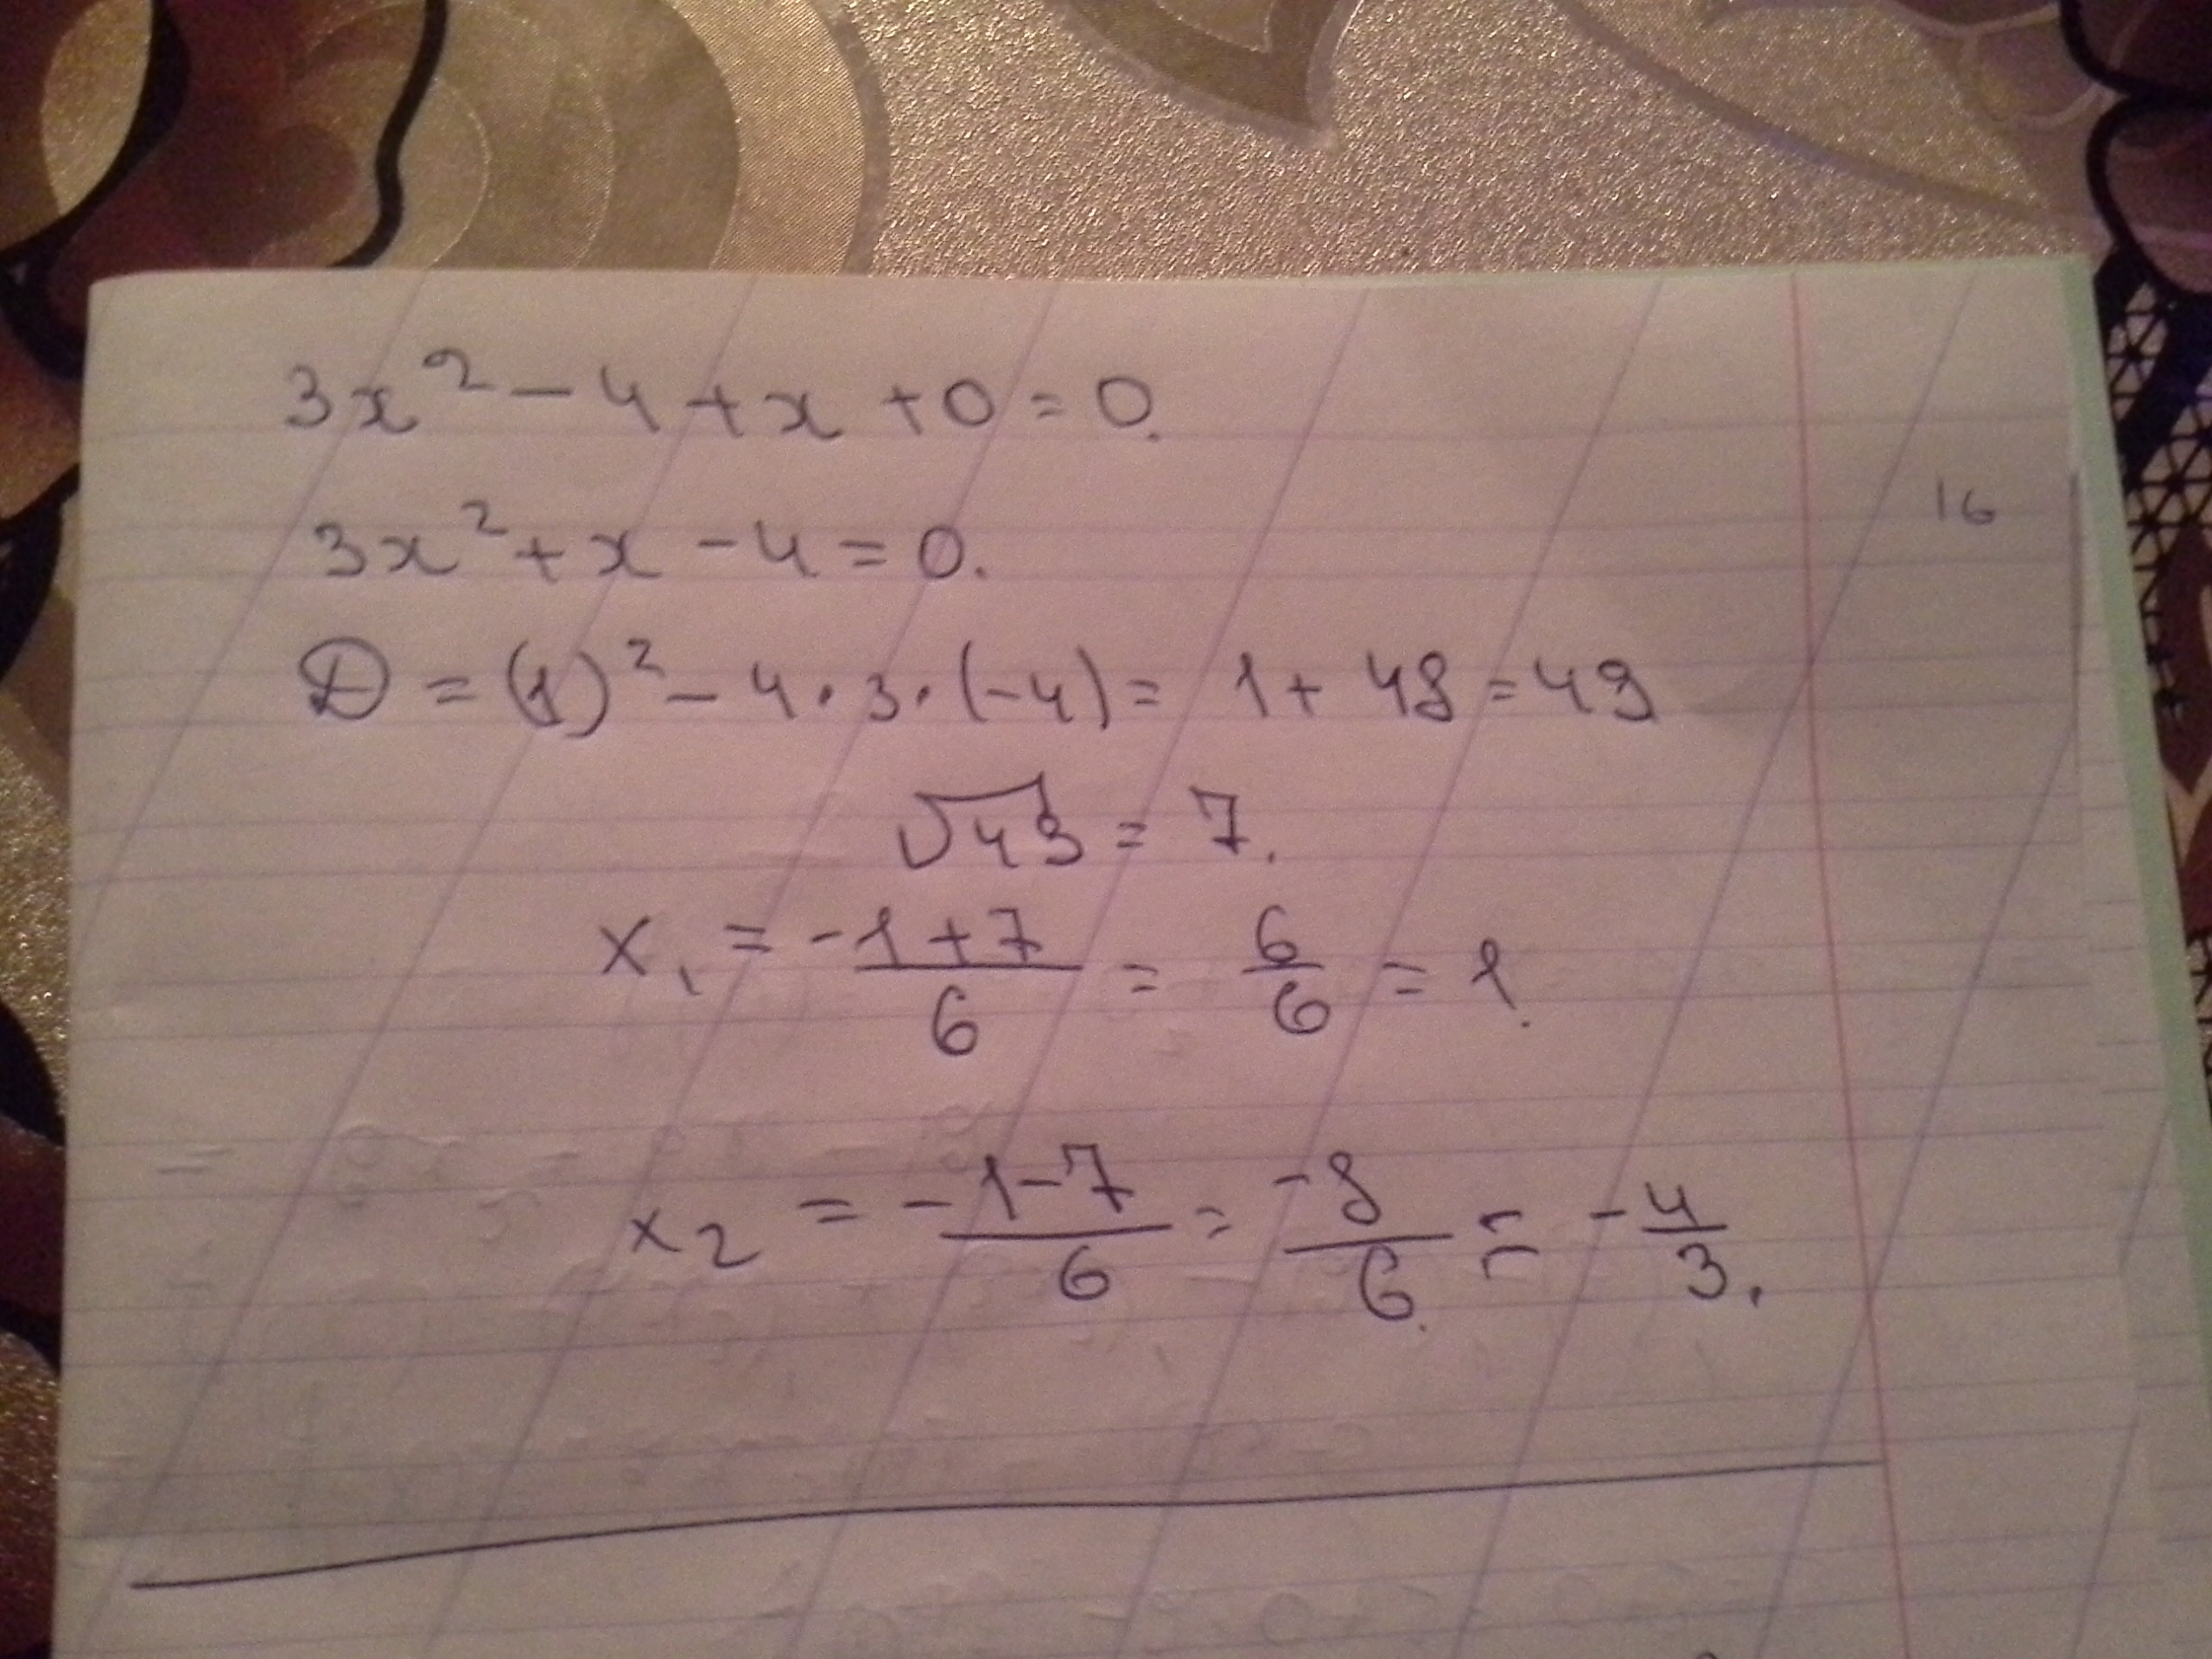 3x² - 4 + x + 0 = 0.
16
3x² + x - 4 = 0.
D = (1)² - 4 · 3 · (-4) = 1 + 48 = 49
√49 = 7.
x₁ = (-1+7)/6 = 6/6 = 1.
x₂ = (-1-7)/6 = -8/6 = -4/3.